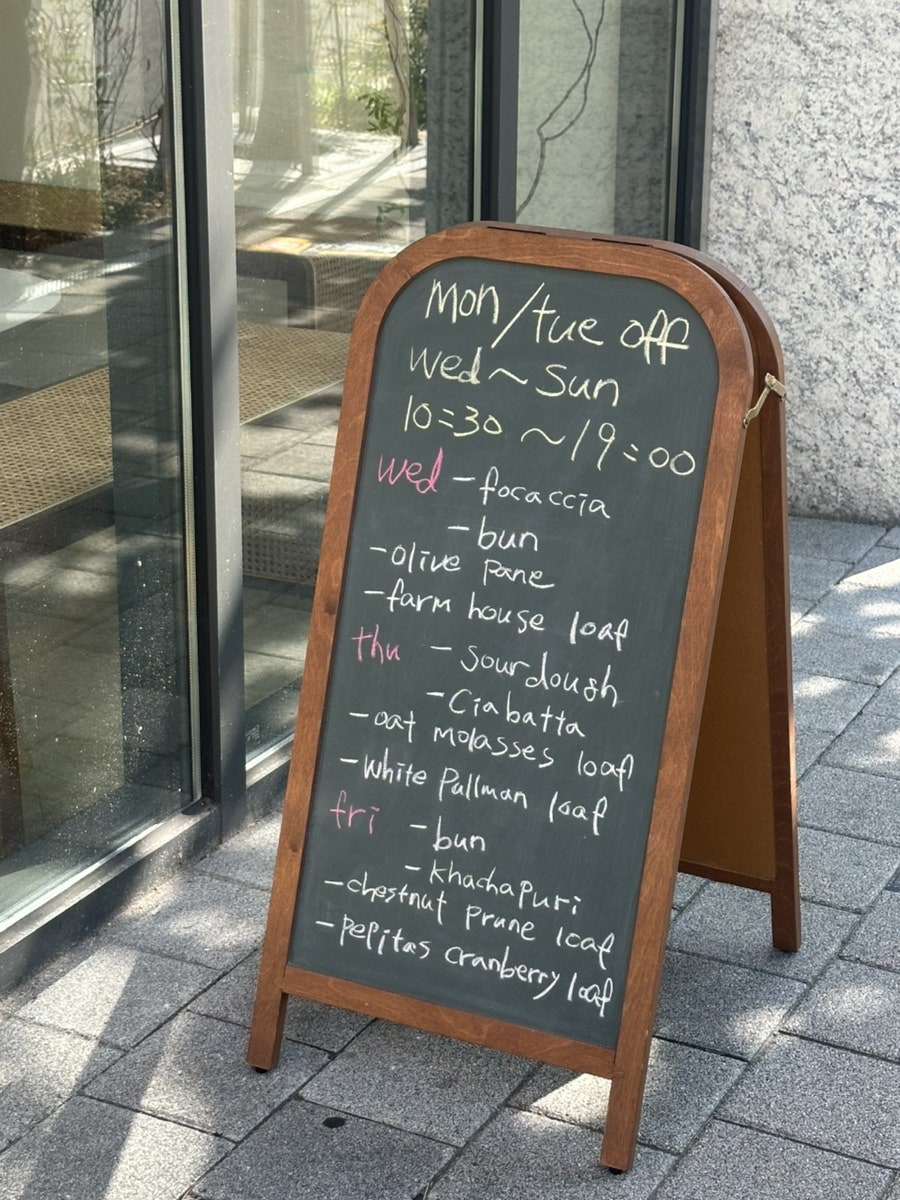 Mon/tue off
Wed~Sun
10:30~19:00
Wed -focaccia
-bun
-olive pane
-farm house loaf
thu -sourdough
-Ciabatta
-oat molasses loaf
-white Pallman loaf
fri -bun
-khachaPuri
-chestnut prune loaf
-pepitas cranberry loaf